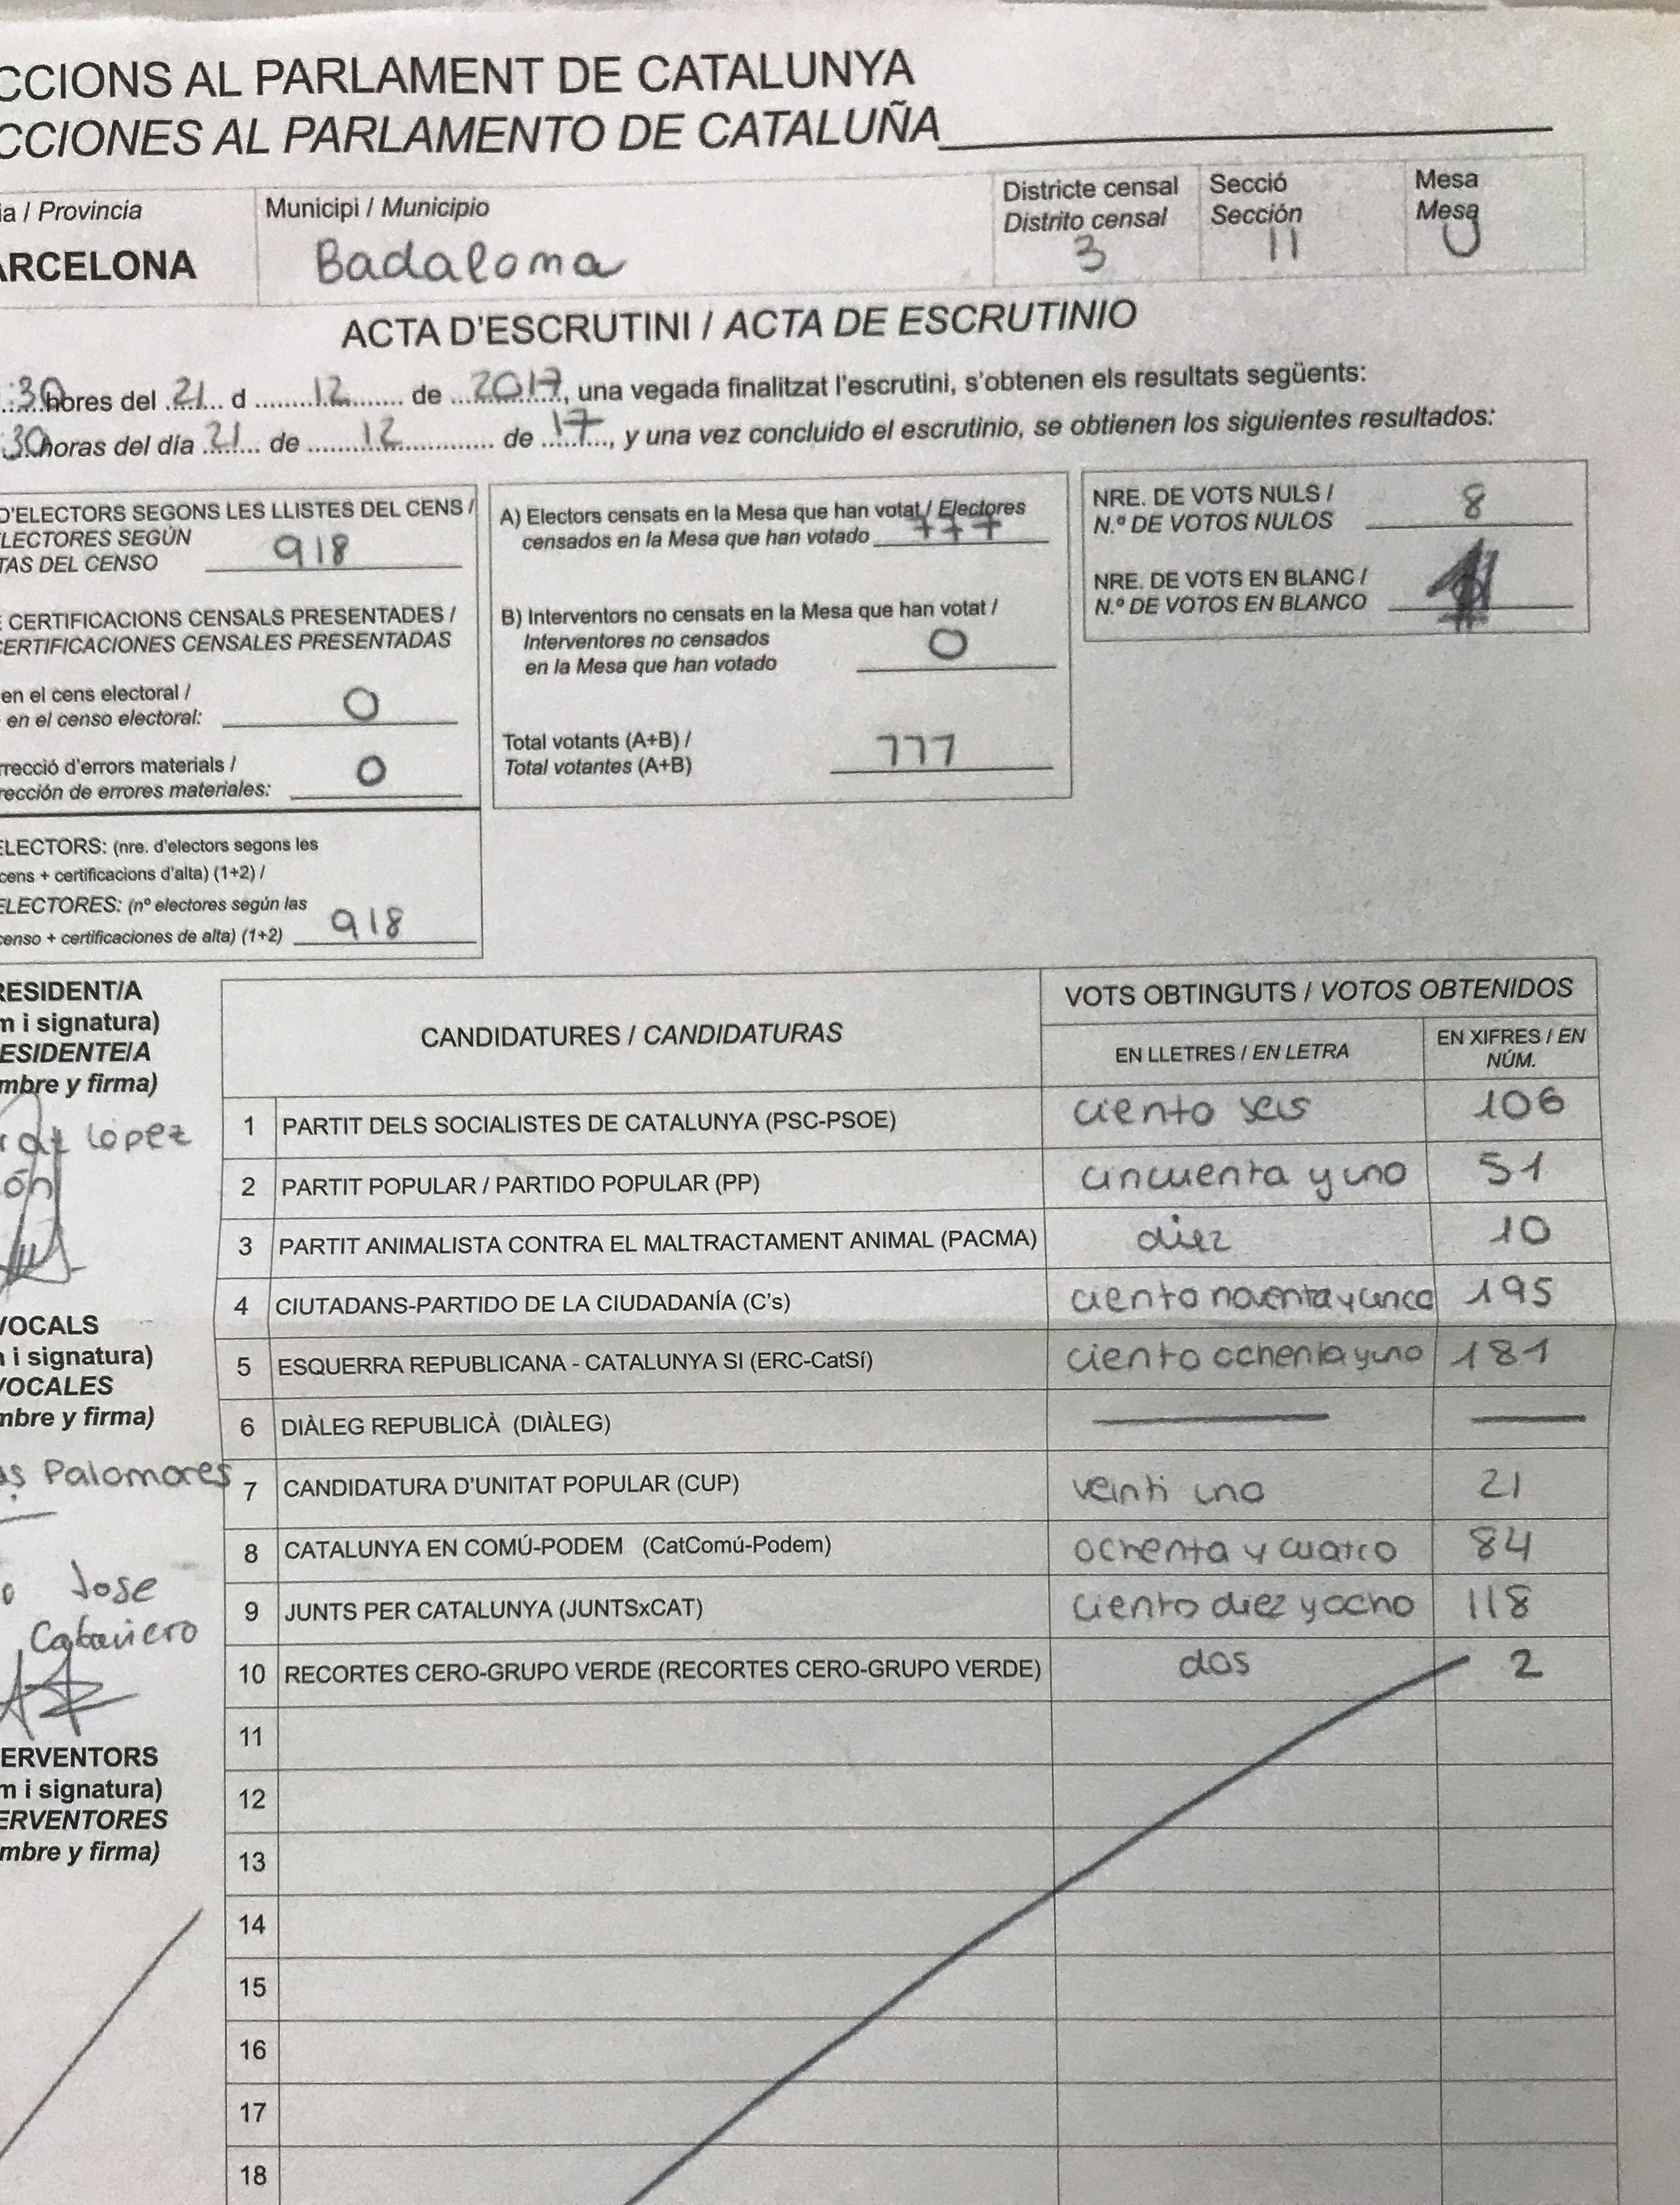 CCIONS AL PARLAMENT DE CATALUNYA
CCIONES AL PARLAMENTO DE CATALUÑA
ia / Provincia
ARCELONA
Municipi / Municipio
Badalona
Districte censal
Distrito censal
3
Secció
Sección
11
Mesa
Mesa
U
ACTA D'ESCRUTINI / ACTA DE ESCRUTINIO
:30 hores del 21 d 12 de 2017, una vegada finalitzat l'escrutini, s'obtenen els resultats següents:
:30 horas del día 21 de 12 de 17, y una vez concluido el escrutinio, se obtienen los siguientes resultados:
D'ELECTORS SEGONS LES LLISTES DEL CENS /
LECTORES SEGÚN
TAS DEL CENSO 918
CERTIFICACIONS CENSALS PRESENTADES /
CERTIFICACIONES CENSALES PRESENTADAS
en el cens electoral /
en el censo electoral: 0
rrecció d'errors materials /
rección de errores materiales: 0
ELECTORS: (nre. d'electors segons les
cens + certificacions d'alta) (1+2) /
ELECTORES: (nº electores según las
censo + certificaciones de alta) (1+2) 918
A) Electors censats en la Mesa que han votat / Electores
censados en la Mesa que han votado 777
B) Interventors no censats en la Mesa que han votat /
Interventores no censados
en la Mesa que han votado 0
Total votants (A+B) /
Total votantes (A+B) 777
NRE. DE VOTS NULS /
N.º DE VOTOS NULOS 8
NRE. DE VOTS EN BLANC /
N.º DE VOTOS EN BLANCO
RESIDENT/A
m i signatura)
ESIDENTE/A
mbre y firma)
López
VOCALS
i signatura)
VOCALES
mbre y firma)
Palomares
Jose
Cabaviero
ERVENTORS
m i signatura)
ERVENTORES
mbre y firma)
CANDIDATURES / CANDIDATURAS
VOTS OBTINGUTS / VOTOS OBTENIDOS
EN LLETRES / EN LETRA
EN XIFRES / EN
NÚM.
1 PARTIT DELS SOCIALISTES DE CATALUNYA (PSC-PSOE) ciento seis 106
2 PARTIT POPULAR / PARTIDO POPULAR (PP) cincuenta y uno 51
3 PARTIT ANIMALISTA CONTRA EL MALTRACTAMENT ANIMAL (PACMA) diez 10
4 CIUTADANS-PARTIDO DE LA CIUDADANÍA (C's) ciento noventa y cinco 195
5 ESQUERRA REPUBLICANA - CATALUNYA SI (ERC-CatSí) ciento ochenta y uno 181
6 DIÀLEG REPUBLICÀ (DIÀLEG)
7 CANDIDATURA D'UNITAT POPULAR (CUP) veinti uno 21
8 CATALUNYA EN COMÚ-PODEM (CatComú-Podem) ochenta y cuatro 84
9 JUNTS PER CATALUNYA (JUNTSxCAT) ciento diez y ocho 118
10 RECORTES CERO-GRUPO VERDE (RECORTES CERO-GRUPO VERDE) dos 2
11
12
13
14
15
16
17
18